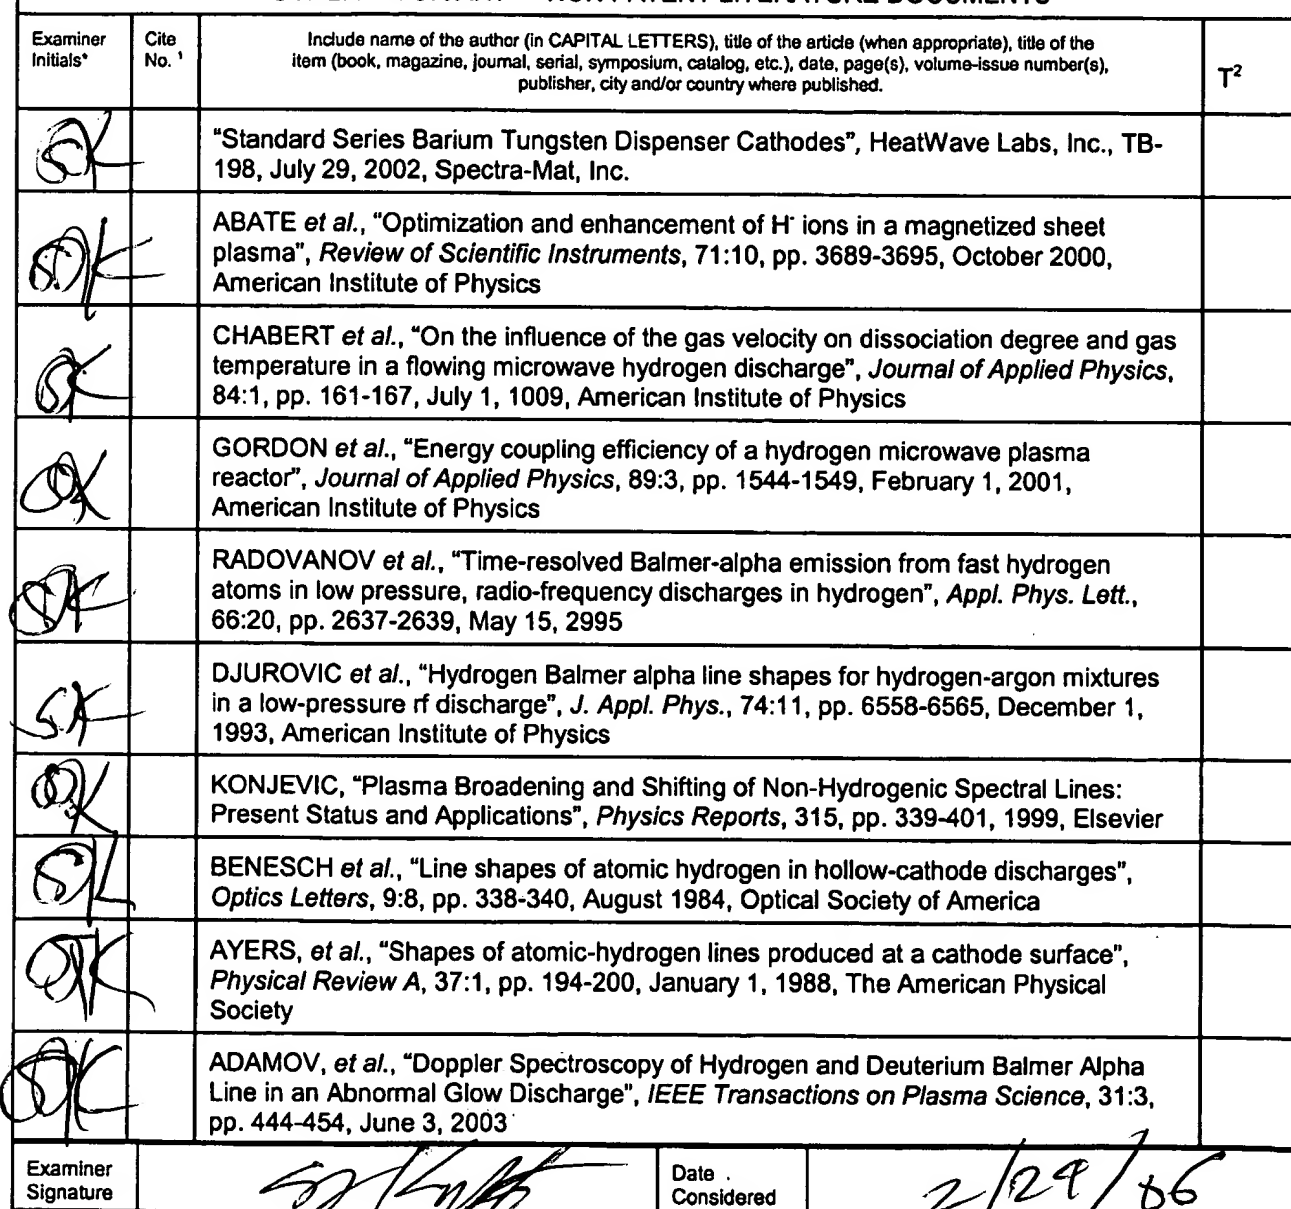 Examiner
Initials*
Cite
No. ¹
Include name of the author (in CAPITAL LETTERS), title of the article (when appropriate), title of the
item (book, magazine, journal, serial, symposium, catalog, etc.), date, page(s), volume-issue number(s),
publisher, city and/or country where published.
T²
"Standard Series Barium Tungsten Dispenser Cathodes", HeatWave Labs, Inc., TB-
198, July 29, 2002, Spectra-Mat, Inc.
ABATE et al., "Optimization and enhancement of H⁻ ions in a magnetized sheet
plasma", Review of Scientific Instruments, 71:10, pp. 3689-3695, October 2000,
American Institute of Physics
CHABERT et al., "On the influence of the gas velocity on dissociation degree and gas
temperature in a flowing microwave hydrogen discharge", Journal of Applied Physics,
84:1, pp. 161-167, July 1, 1009, American Institute of Physics
GORDON et al., "Energy coupling efficiency of a hydrogen microwave plasma
reactor", Journal of Applied Physics, 89:3, pp. 1544-1549, February 1, 2001,
American Institute of Physics
RADOVANOV et al., "Time-resolved Balmer-alpha emission from fast hydrogen
atoms in low pressure, radio-frequency discharges in hydrogen", Appl. Phys. Lett.,
66:20, pp. 2637-2639, May 15, 2995
DJUROVIC et al., "Hydrogen Balmer alpha line shapes for hydrogen-argon mixtures
in a low-pressure rf discharge", J. Appl. Phys., 74:11, pp. 6558-6565, December 1,
1993, American Institute of Physics
KONJEVIC, "Plasma Broadening and Shifting of Non-Hydrogenic Spectral Lines:
Present Status and Applications", Physics Reports, 315, pp. 339-401, 1999, Elsevier
BENESCH et al., "Line shapes of atomic hydrogen in hollow-cathode discharges",
Optics Letters, 9:8, pp. 338-340, August 1984, Optical Society of America
AYERS, et al., "Shapes of atomic-hydrogen lines produced at a cathode surface",
Physical Review A, 37:1, pp. 194-200, January 1, 1988, The American Physical
Society
ADAMOV, et al., "Doppler Spectroscopy of Hydrogen and Deuterium Balmer Alpha
Line in an Abnormal Glow Discharge", IEEE Transactions on Plasma Science, 31:3,
pp. 444-454, June 3, 2003
Examiner
Signature
Date
Considered
2/29/06